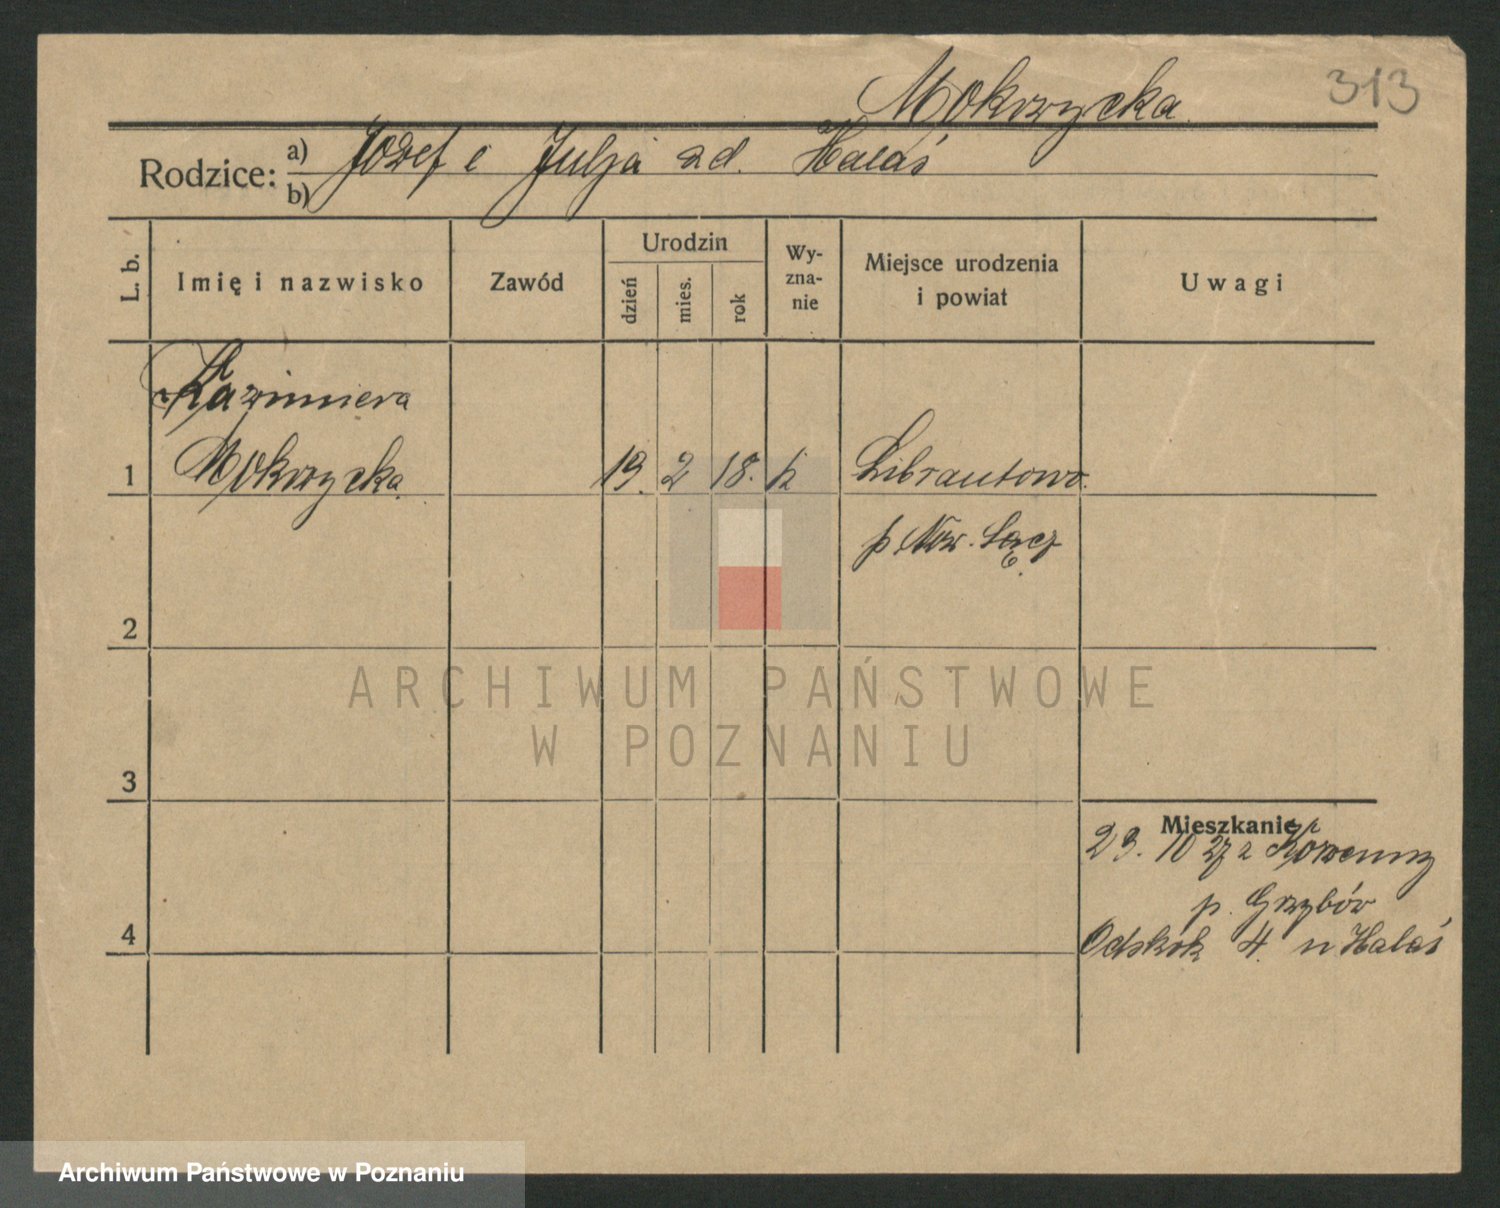 Mokrzycka
313
Rodzice: a) Józef i Julja zd. Halaś
b)
L. b. Imię i nazwisko Zawód Urodzin dzień mies. rok Wy-zna-nie Miejsce urodzenia i powiat Uwagi
Kazimiera
1 Mokrzycka 19. 2 18. k Librantowo.
p Now. Sącz
2
3
Mieszkanie
23. 10 27 z Korzenny
p. Grzybów
4 Odskok 4. u Halaś
ARCHIWUM PAŃSTWOWE
W POZNANIU
Archiwum Państwowe w Poznaniu